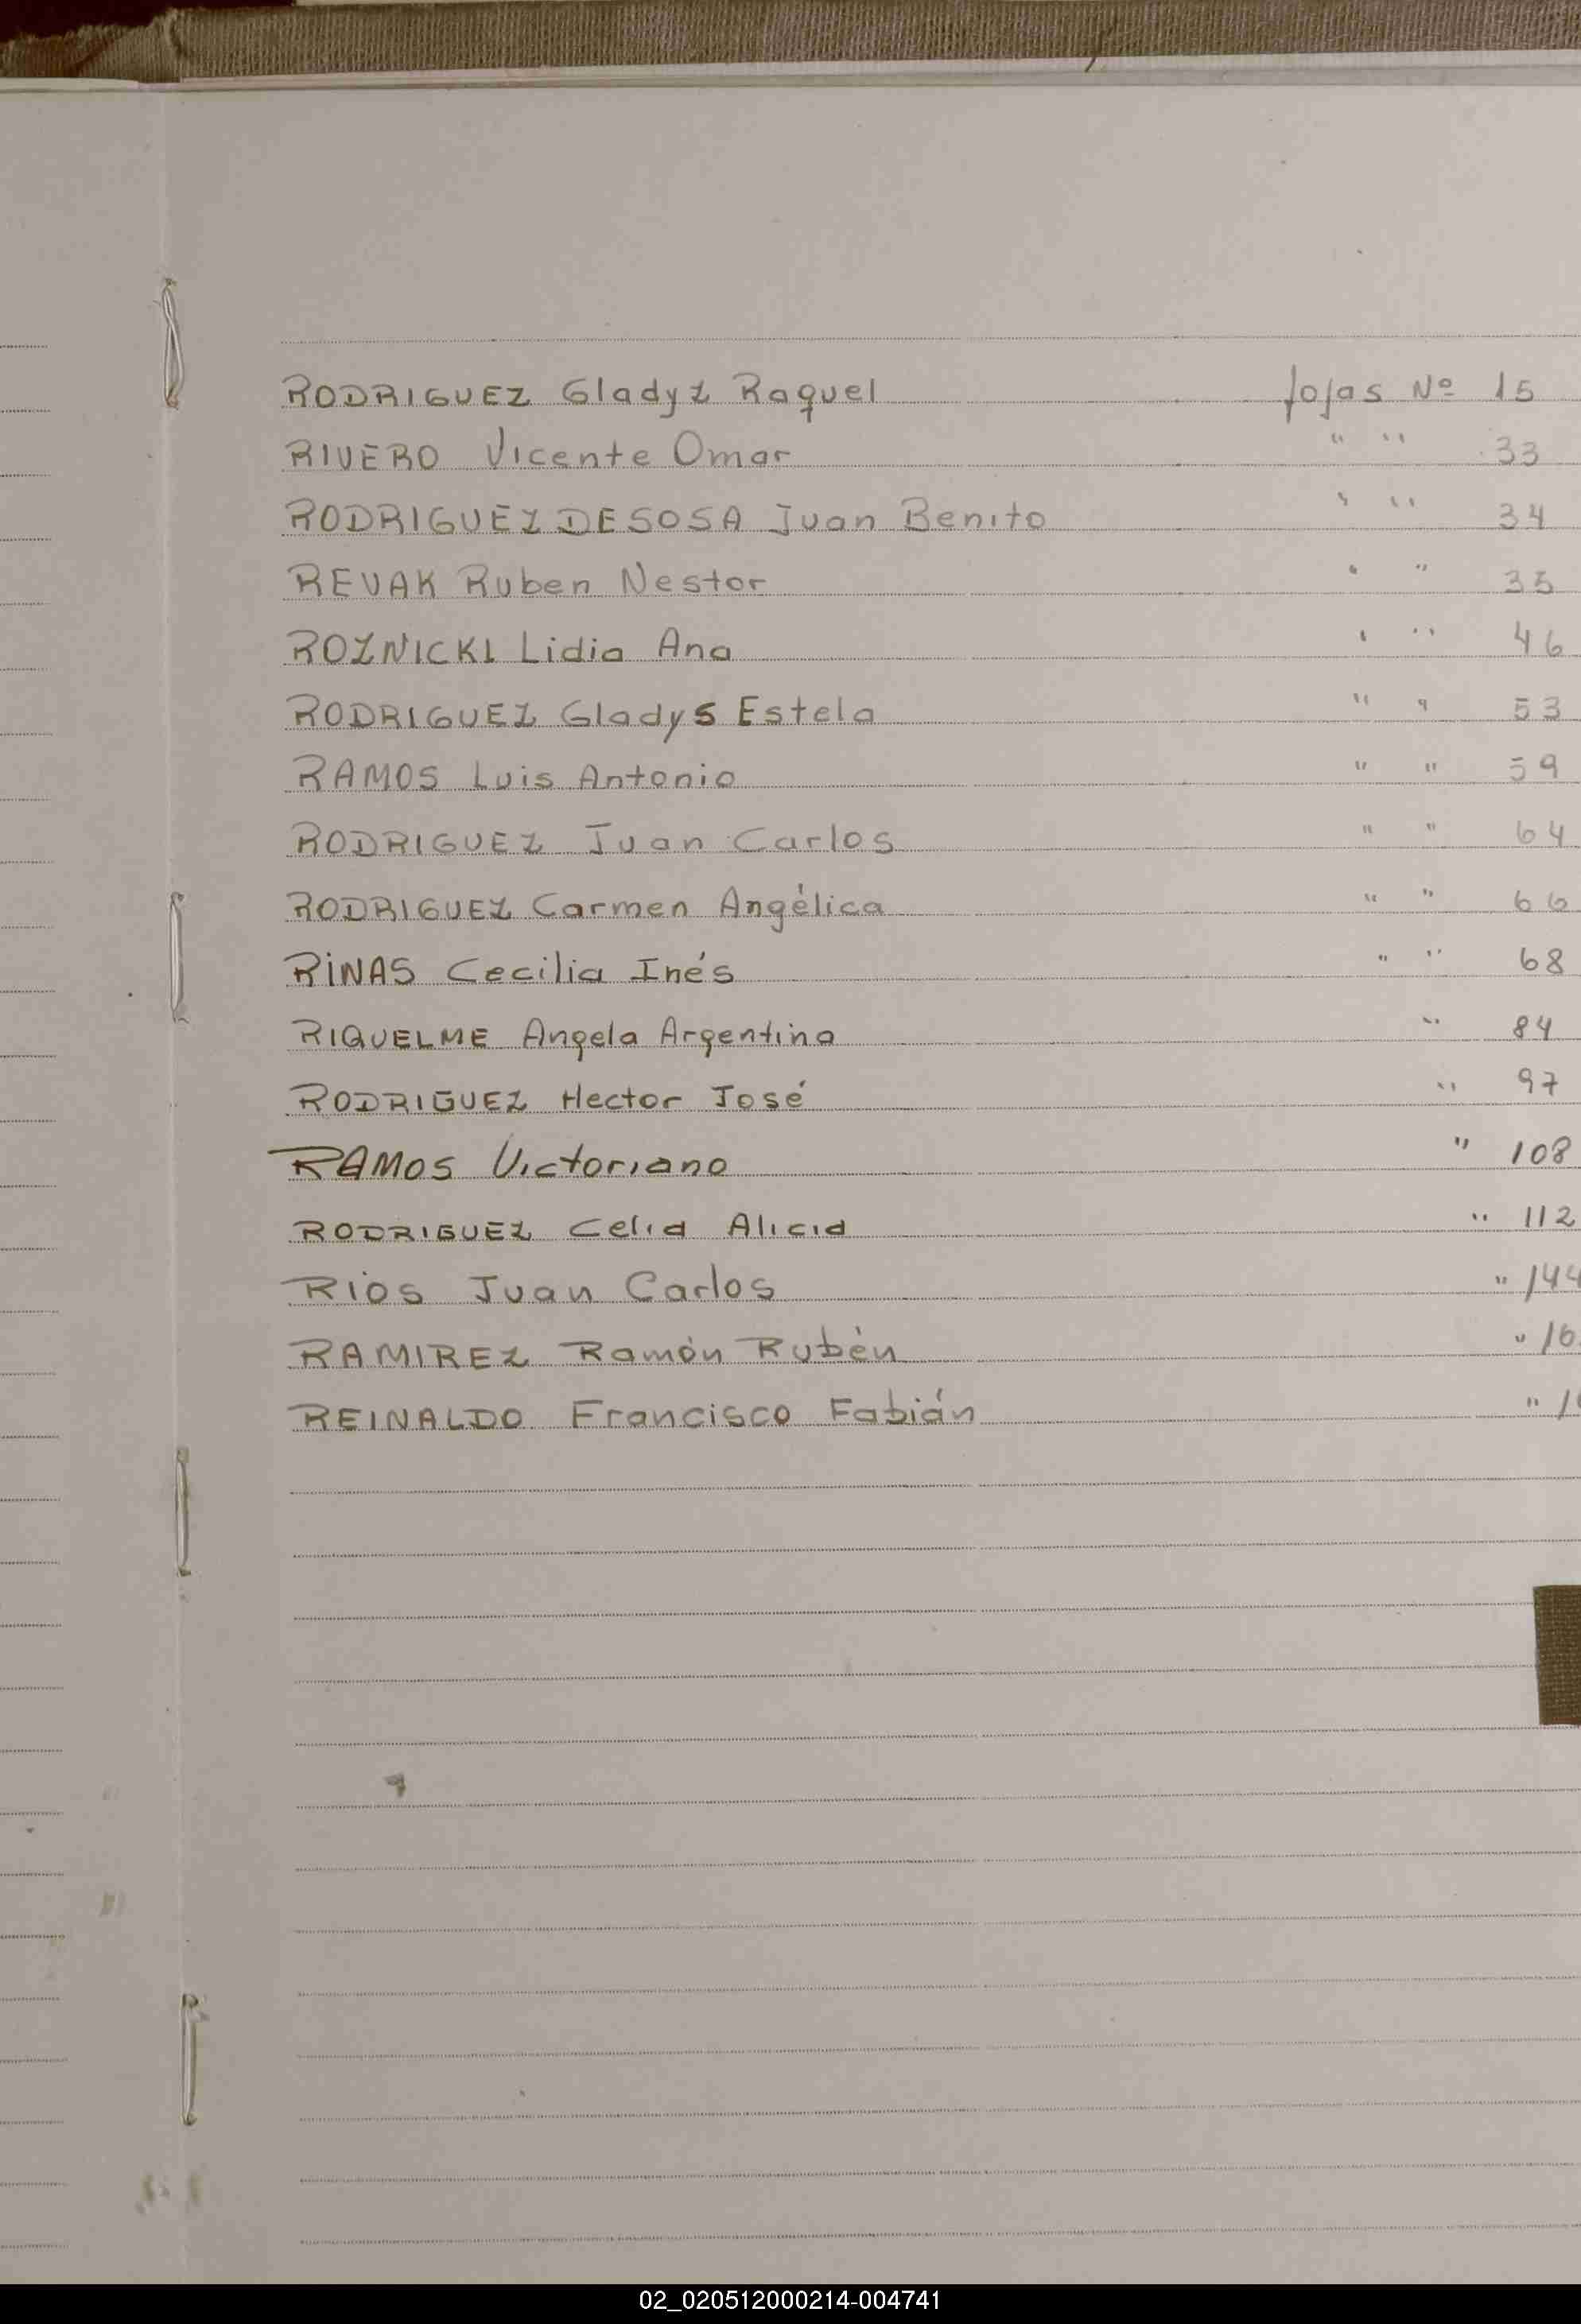 RODRIGUEZ Gladyz Raquel fojas Nº 15
RIVERO Vicente Omar " " 33
RODRIGUEZ DE SOSA Juan Benito " " 34
REVAK Ruben Nestor " " 35
ROZNICKI Lidia Ana " " 46
RODRIGUEZ Gladys Estela " " 53
RAMOS Luis Antonio " " 59
RODRIGUEZ Juan Carlos " " 64
RODRIGUEZ Carmen Angélica " " 66
RINAS Cecilia Inés " " 68
RIQUELME Angela Argentina " 84
RODRIGUEZ Hector José " 97
RAMOS Victoriano " 108
RODRIGUEZ Celia Alicia " 112
RIOS Juan Carlos " 144
RAMIREZ Ramón Rubén "
REINALDO Francisco Fabián "
02_020512000214-004741